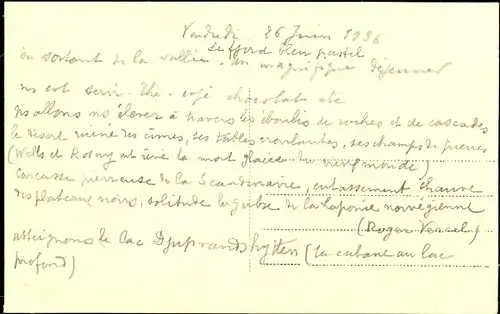 Vendredi 26 Juin 1936
en sortant de la vallée - le fjord bleu pastel un magnifique déjeuner
ns est servi - Thé - café chocolat etc
ns allons ns élever à travers les éboulis de roches et de cascades
le désert ruiné des cimes, ses tables croulantes, ses champs de pierres
(Wells et Rosny ont rêvé la mort glacée du vieux monde)
carcasse pierreuse de la Scandinavie, entassement chauve
des plateaux noirs, solitude lugubre de la Laponie norvégienne
(Roger Vercel)
atteignons le lac Djupvandshytten (la cabane au lac
profond)